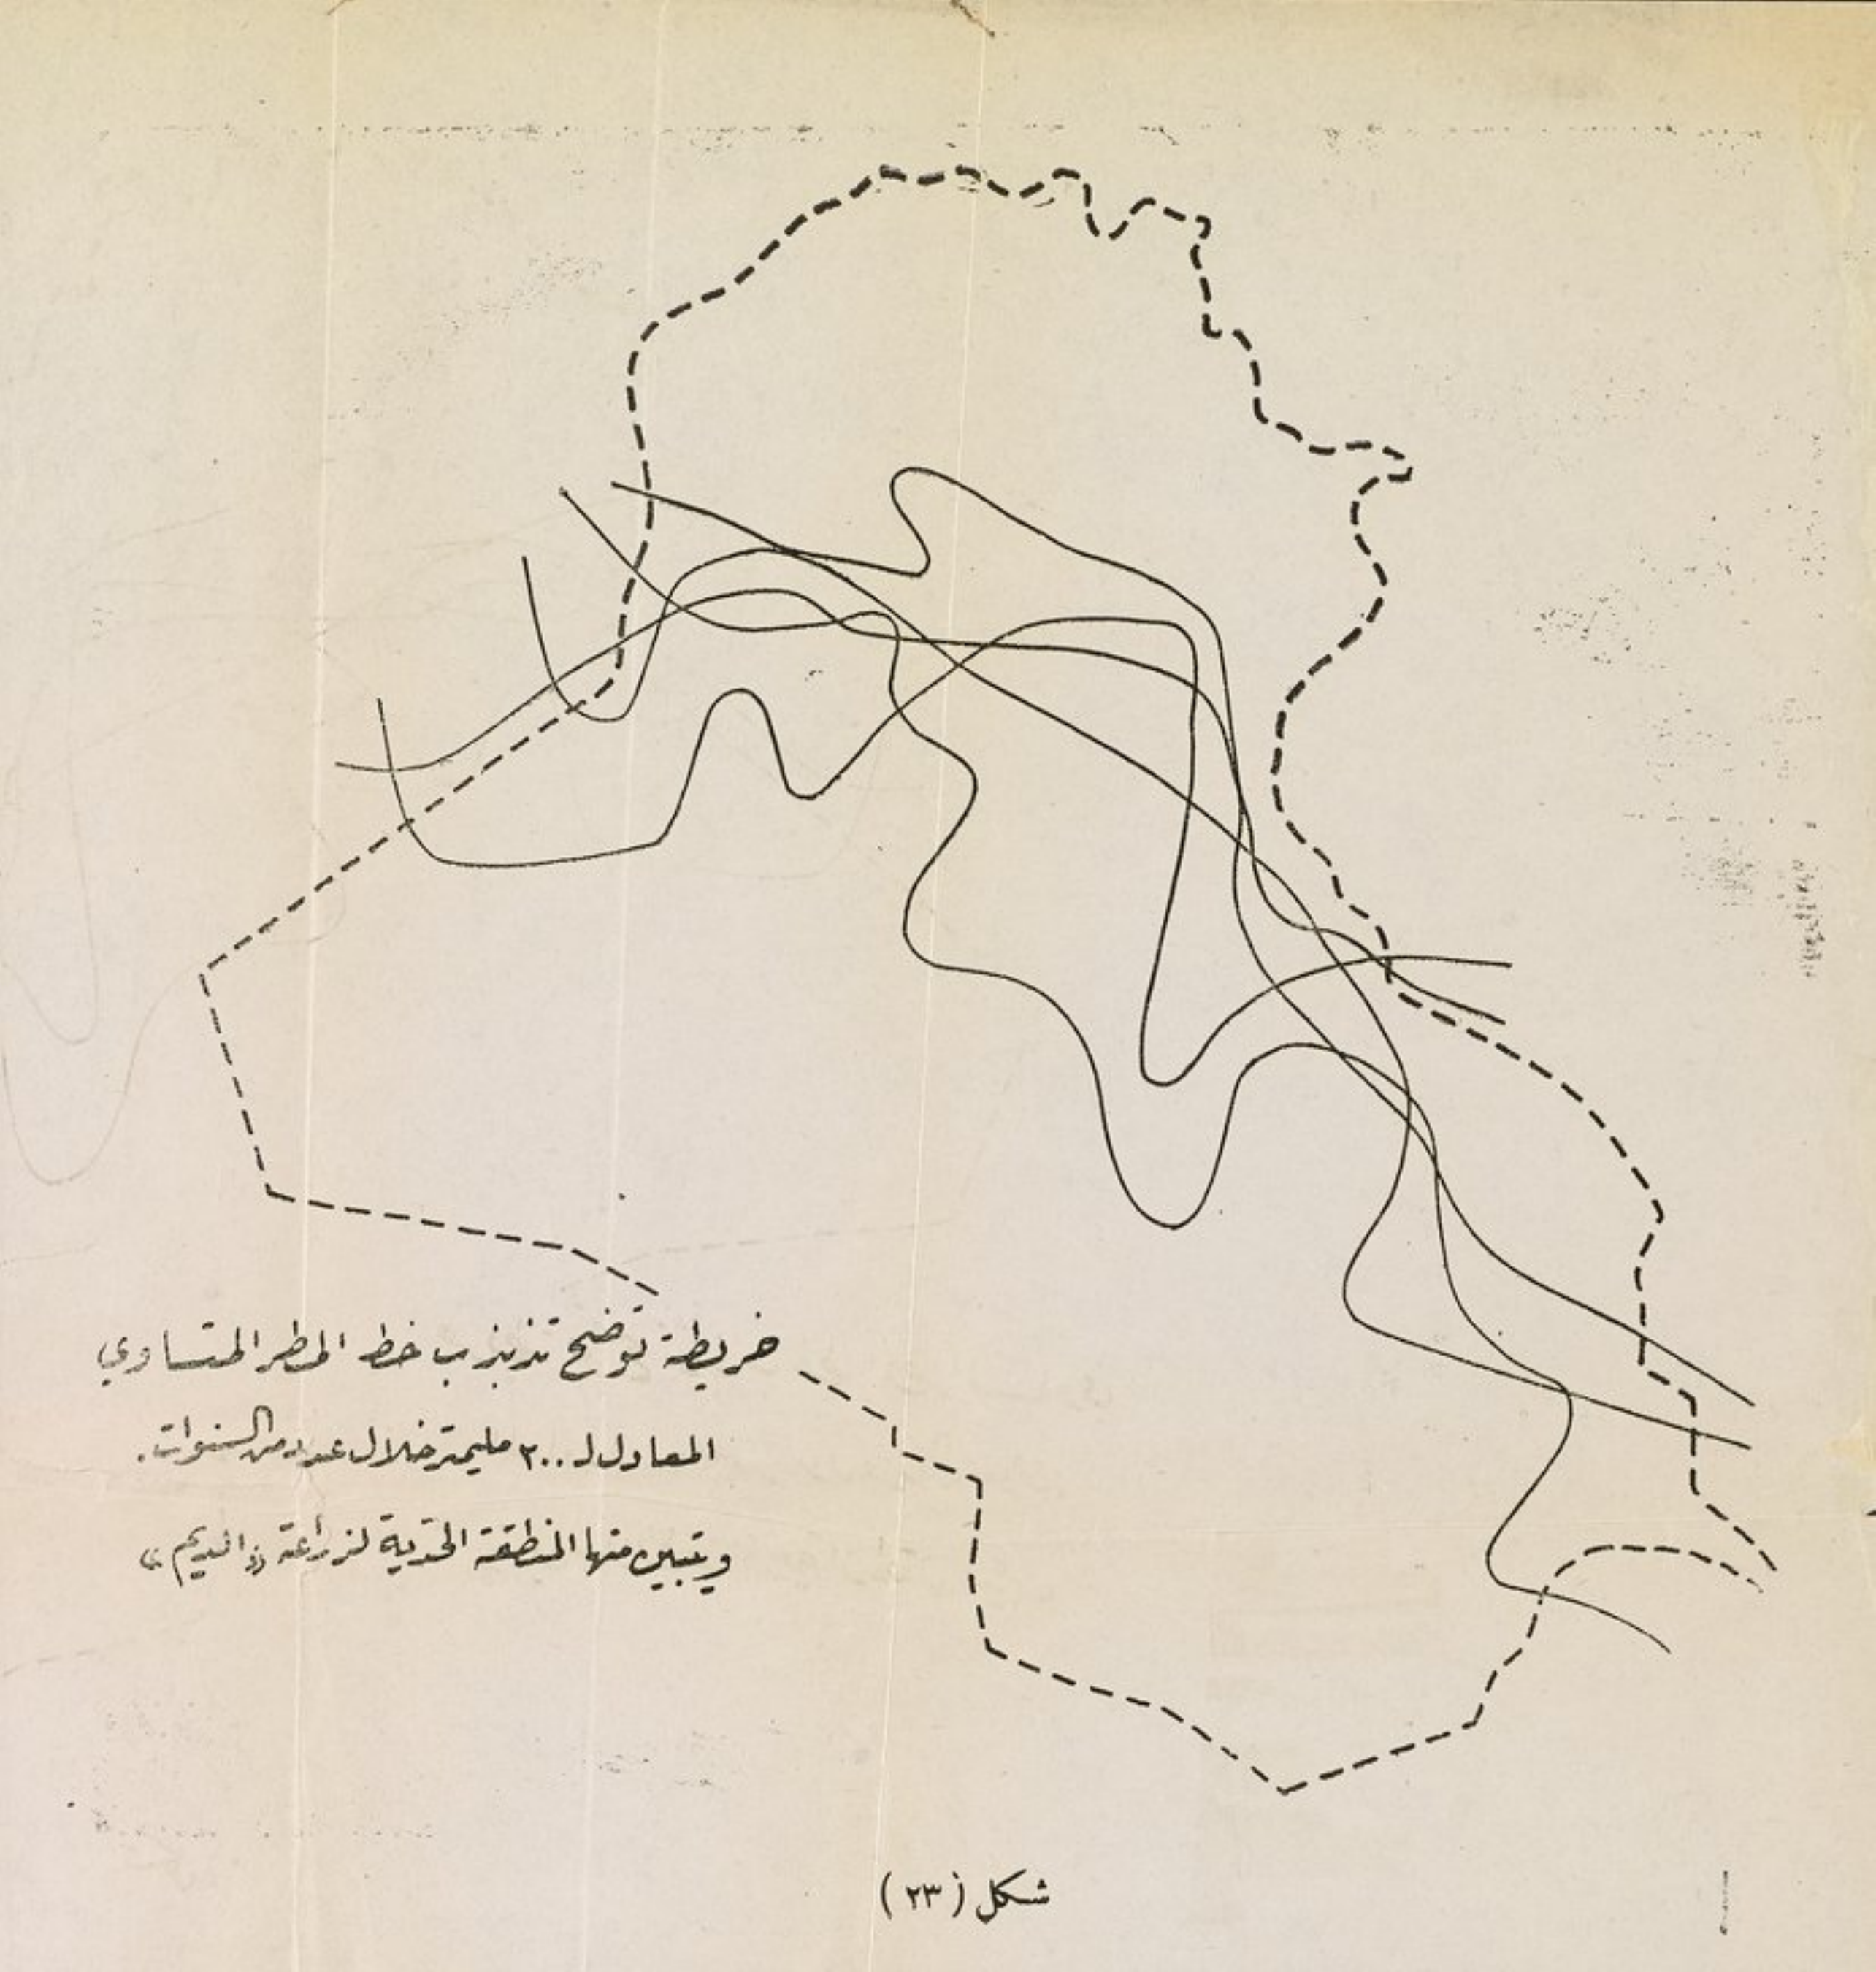 خريطة توضح تذبذب خط المطر المتساوي
المعادل ل ٢٠٠ مليمتر خلال عدد من السنوات.
ويتبين منها المنطقة الحدية لزراعة «الديم»
شكل (٢٣)